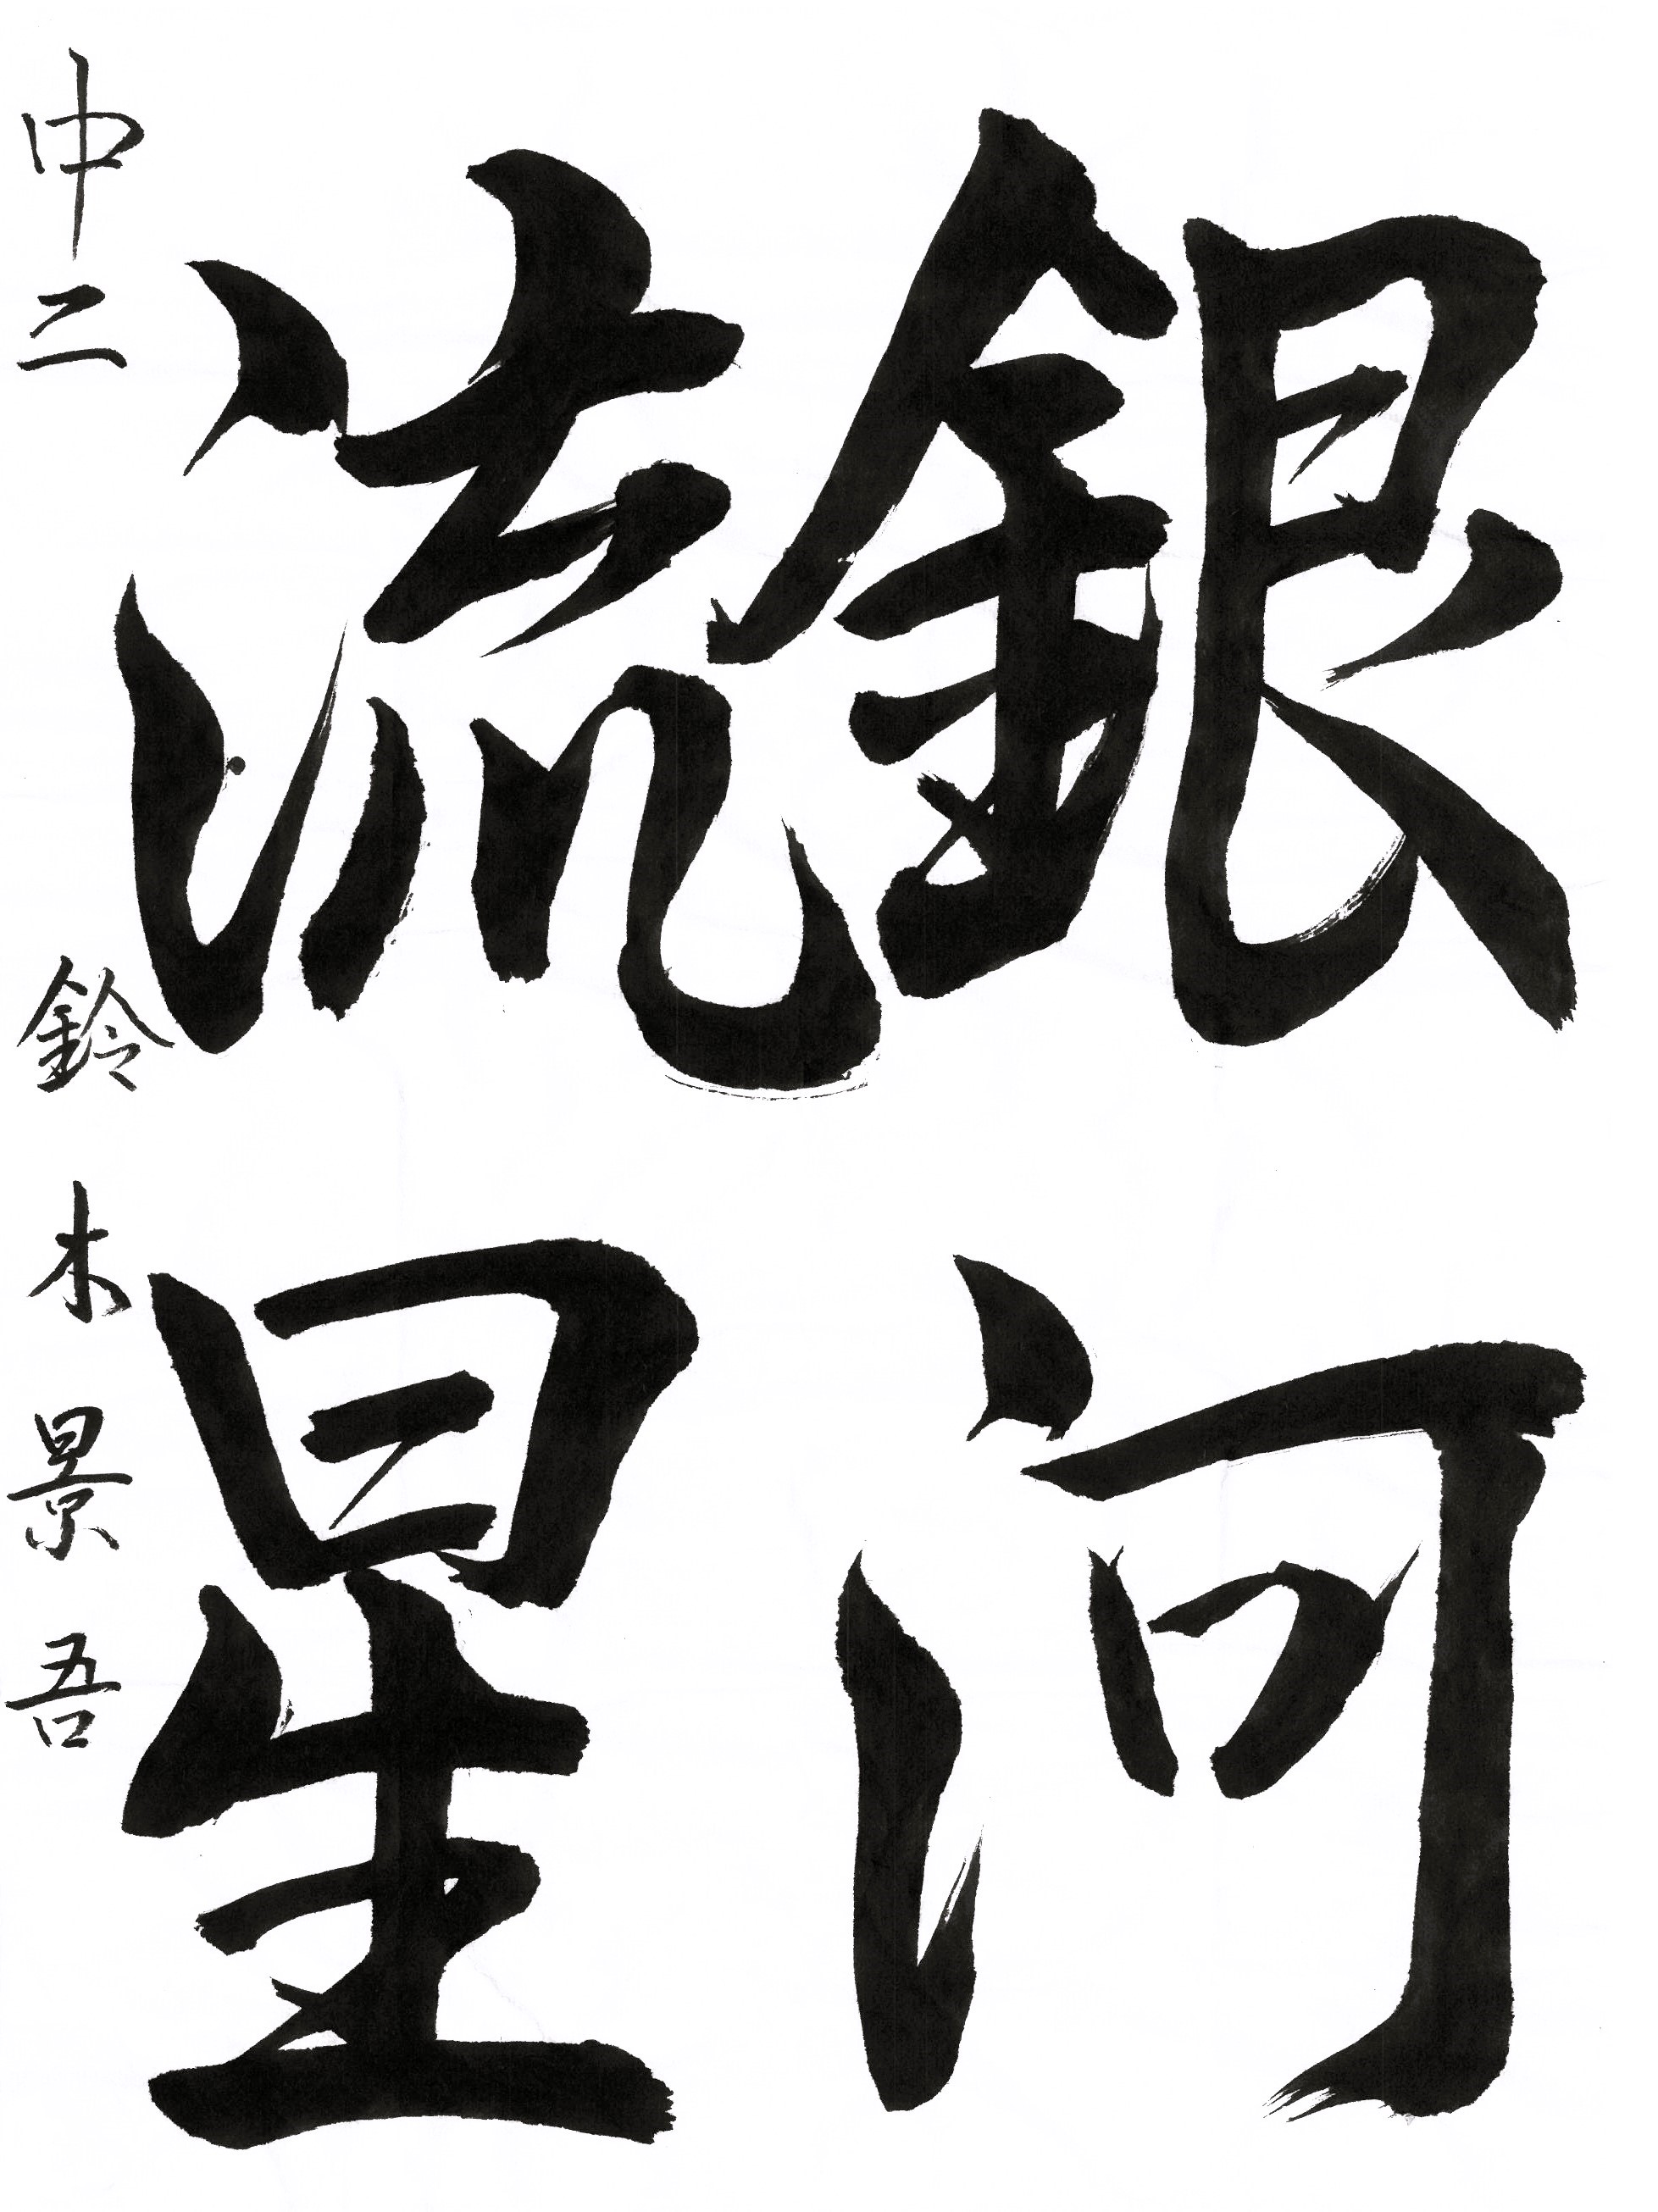 銀河
流星
中二 鈴木景吾